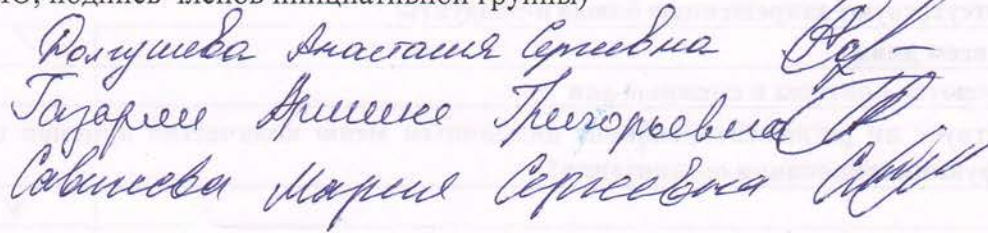 подпись членов инициативной группы)
Долгушева Анастасия Сергеевна
Газарян Армине Григорьевна
Савинова Мария Сергеевна